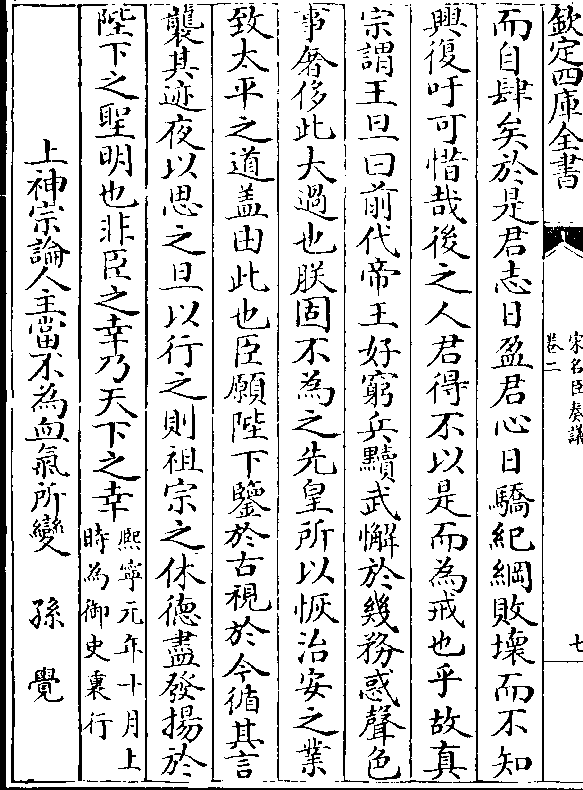 欽定四庫全書
宋名臣奏議
卷二
七
而自肆矣於是君志日盈君心日驕紀綱敗壞而不知
興復吁可惜哉後之人君得不以是而為戒也乎故真
宗謂王旦曰前代帝王好窮兵黷武懈於幾務惑聲色
事奢侈此大過也朕固不為之先皇所以恢治安之業
致太平之道盖由此也臣願陛下鑒於古視於今循其言
襲其迹夜以思之旦以行之則祖宗之休德盡發揚於
陛下之聖明也非臣之幸乃天下之幸
熙寧元年十月上
時為御史裏行
上神宗論人主當不為血氣所變 孫覺